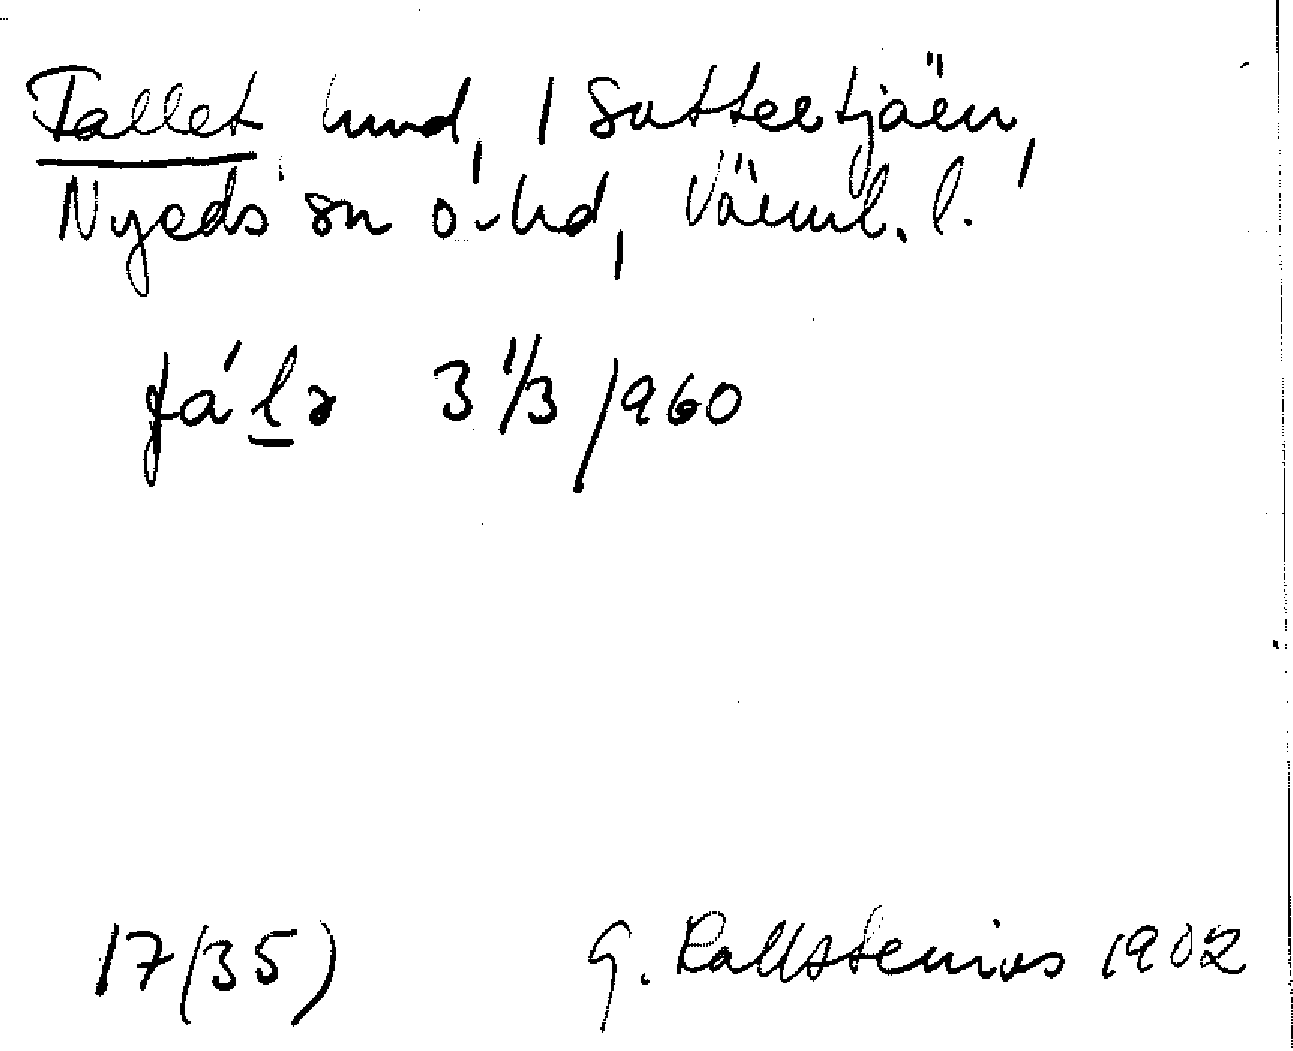 Tallet hmd, 1 Suttertjärn,
Nyeds sn o. hd, Värml. l.
tálə 3 1/3 1960
17(35) G. Kallstenius 1902